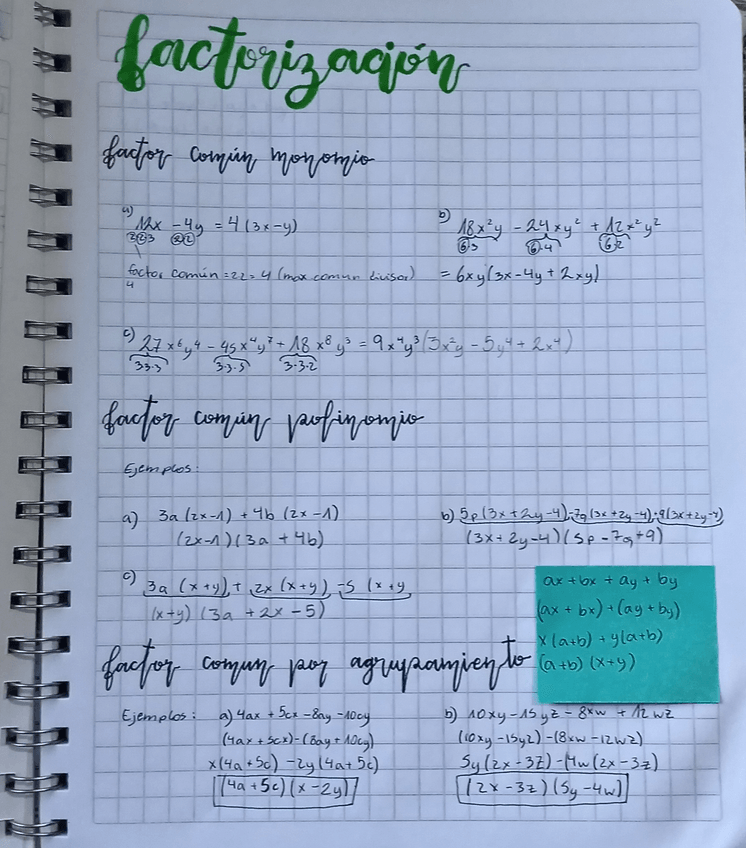 factorización
factor común monomio
a) 12x - 4y = 4(3x-y)
223 22
factor común = 22 = 4 (max comun divisor)
4
b) 18x²y - 24xy² + 12x²y²
6·3 6·4 6·2
= 6xy(3x-4y+2xy)
c) 27x⁶y⁴ - 45x⁴y⁷ + 18x⁸y³ = 9x⁴y³(3x²y - 5y⁴ + 2x⁴)
3·3·3 3·3·5 3·3·2
factor común polinomio
Ejemplos:
a) 3a(2x-1) + 4b(2x-1)
(2x-1)(3a+4b)
b) 5p(3x+2y-4)-7q(3x+2y-4)+9(3x+2y-4)
(3x+2y-4)(5p-7q+9)
c) 3a(x+y)+2x(x+y)-5(x+y
(x+y)(3a+2x-5)
ax+bx+ay+by
(ax+bx)+(ay+by)
x(a+b)+y(a+b)
(a+b)(x+y)
factor comun por agrupamiento
Ejemplos: a) 4ax+5cx-8ay-10cy
(4ax+5cx)-(8ay+10cy)
x(4a+5c)-2y(4a+5c)
(4a+5c)(x-2y)
b) 10xy-15yz-8xw+12wz
(10xy-15yz)-(8xw-12wz)
5y(2x-3z)-4w(2x-3z)
(2x-3z)(5y-4w)